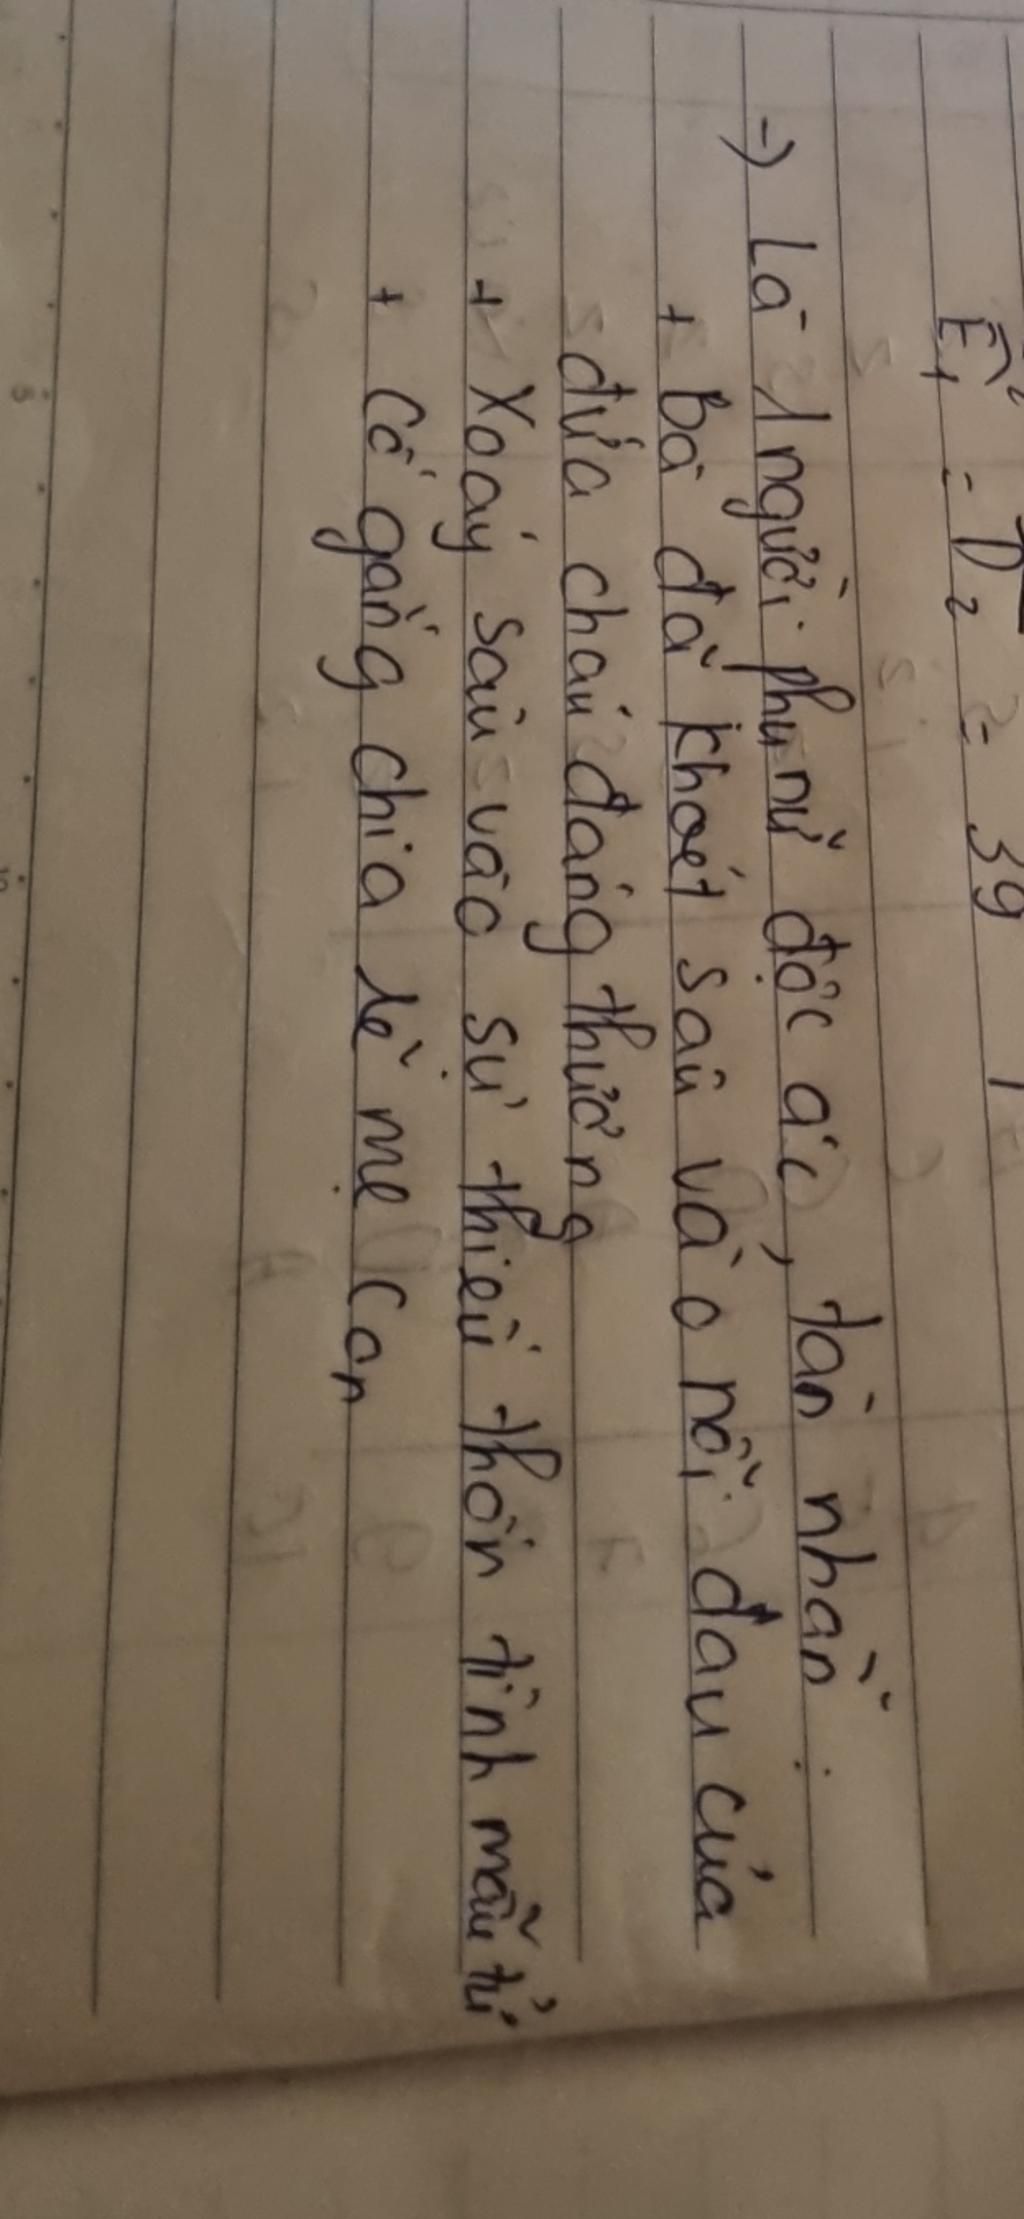 → Là 1 người phụ nữ độc ác, tàn nhẫn.
+ Bà đã khoét sâu vào nỗi đau của
đứa cháu đáng thương
+ Xoáy sâu vào sự thiếu thốn tình mẫu tử
+ Cố gắng chia rẽ mẹ con